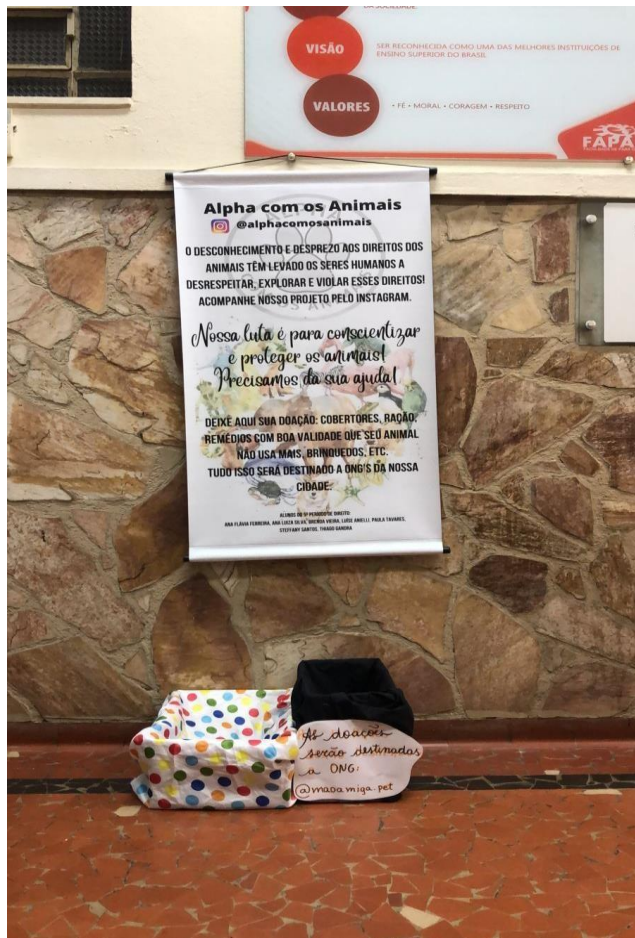 DA SOCIEDADE.
VISÃO
SER RECONHECIDA COMO UMA DAS MELHORES INSTITUIÇÕES DE
ENSINO SUPERIOR DO BRASIL
VALORES
• FÉ • MORAL • CORAGEM • RESPEITO
Alpha com os Animais
@alphacomosanimais
O DESCONHECIMENTO E DESPREZO AOS DIREITOS DOS
ANIMAIS TÊM LEVADO OS SERES HUMANOS A
DESRESPEITAR, EXPLORAR E VIOLAR ESSES DIREITOS!
ACOMPANHE NOSSO PROJETO PELO INSTAGRAM.
Nossa luta é para conscientizar
e proteger os animais!
Precisamos da sua ajuda!
DEIXE AQUI SUA DOAÇÃO: COBERTORES, RAÇÃO,
REMÉDIOS COM BOA VALIDADE QUE SEU ANIMAL
NÃO USA MAIS, BRINQUEDOS, ETC.
TUDO ISSO SERÁ DESTINADO A ONG'S DA NOSSA
CIDADE.
ALUNOS DO 5º PERÍODO DE DIREITO:
ANA FLÁVIA FERREIRA, ANA LUIZA SILVA, BRENDA VIEIRA, LUÍSE ANIELLI, PAULA TAVARES,
STEFFANY SANTOS, THIAGO GANDRA
As doações
serão destinadas
a ONG:
@maoamiga.pet